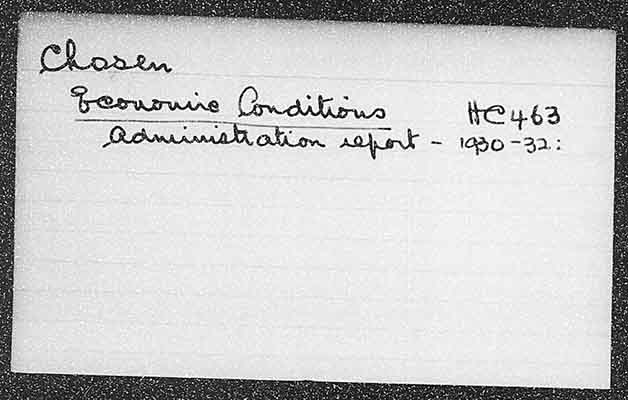 Chosen
Economic Conditions HC463
Administration report - 1930-32: